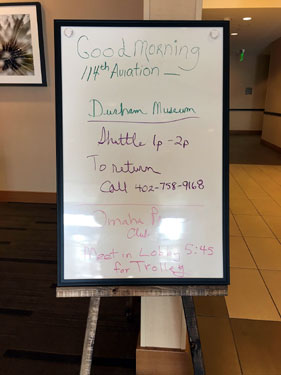 Good Morning
114th Aviation
Durham Museum
Shuttle 1p - 2p
To return
Call 402-758-9168
Omaha
Club
Meet in Lobby 5:45
for Trolley